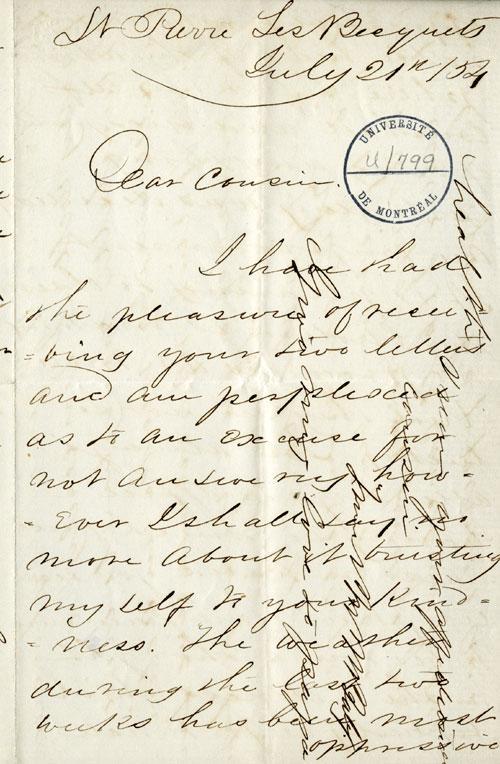 St Pierre Les Becquets
July 21st /54
UNIVERSITÉ
U/799
DE MONTRÉAL
Dear Cousin.
I have had
the pleasure of recei
=ving your two letters
and am perplexed
as to an excuse for
not answering how-
-ever I shall say no
more about it trusting
my self to your kind-
-ness. The weather
during the last two
weeks has been most
oppressive
your affectionate
cousin
love to